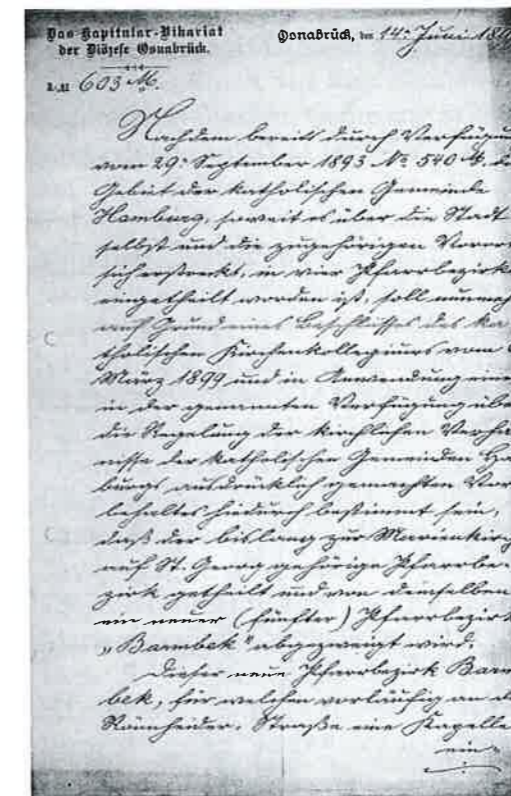 Das Kapitular-Vikariat
der Diözese Osnabrück.
Osnabrück, den 14ᵗ Juni 189
J.-№ 603 M.
Nachdem bereits durch Verfügu
vom 29ᵗ September 1893 № 540 M. d
Gebiet der katholischen Gemeinde
Hamburg, soweit es über die Stadt
selbst und die zugehörigen Voror
sich erstreckt, in vier Pfarrbezirk
eingetheilt worden ist, soll nunmeh
auf Grund eines Beschlusses des ka
tholischen Kirchenkollegiums vom
März 1899 und in Anwendung eine
in der genannten Verfügung übe
die Regelung der kirchlichen Verhä
nisse der katholischen Gemeinden Ha
burgs ausdrücklich gemachten Vor
behaltes hiedurch bestimmt sein,
daß der bislang zur Marienkirch
auf St. Georg gehörige Pfarrbe-
zirk getheilt und von demselben
ein neuer (fünfter) Pfarrbezirk
„Barmbek" abgezweigt wird.
Dieser neue Pfarrbezirk Barm
bek, für welchen vorläufig an d
Straße eine Kapelle
ein-